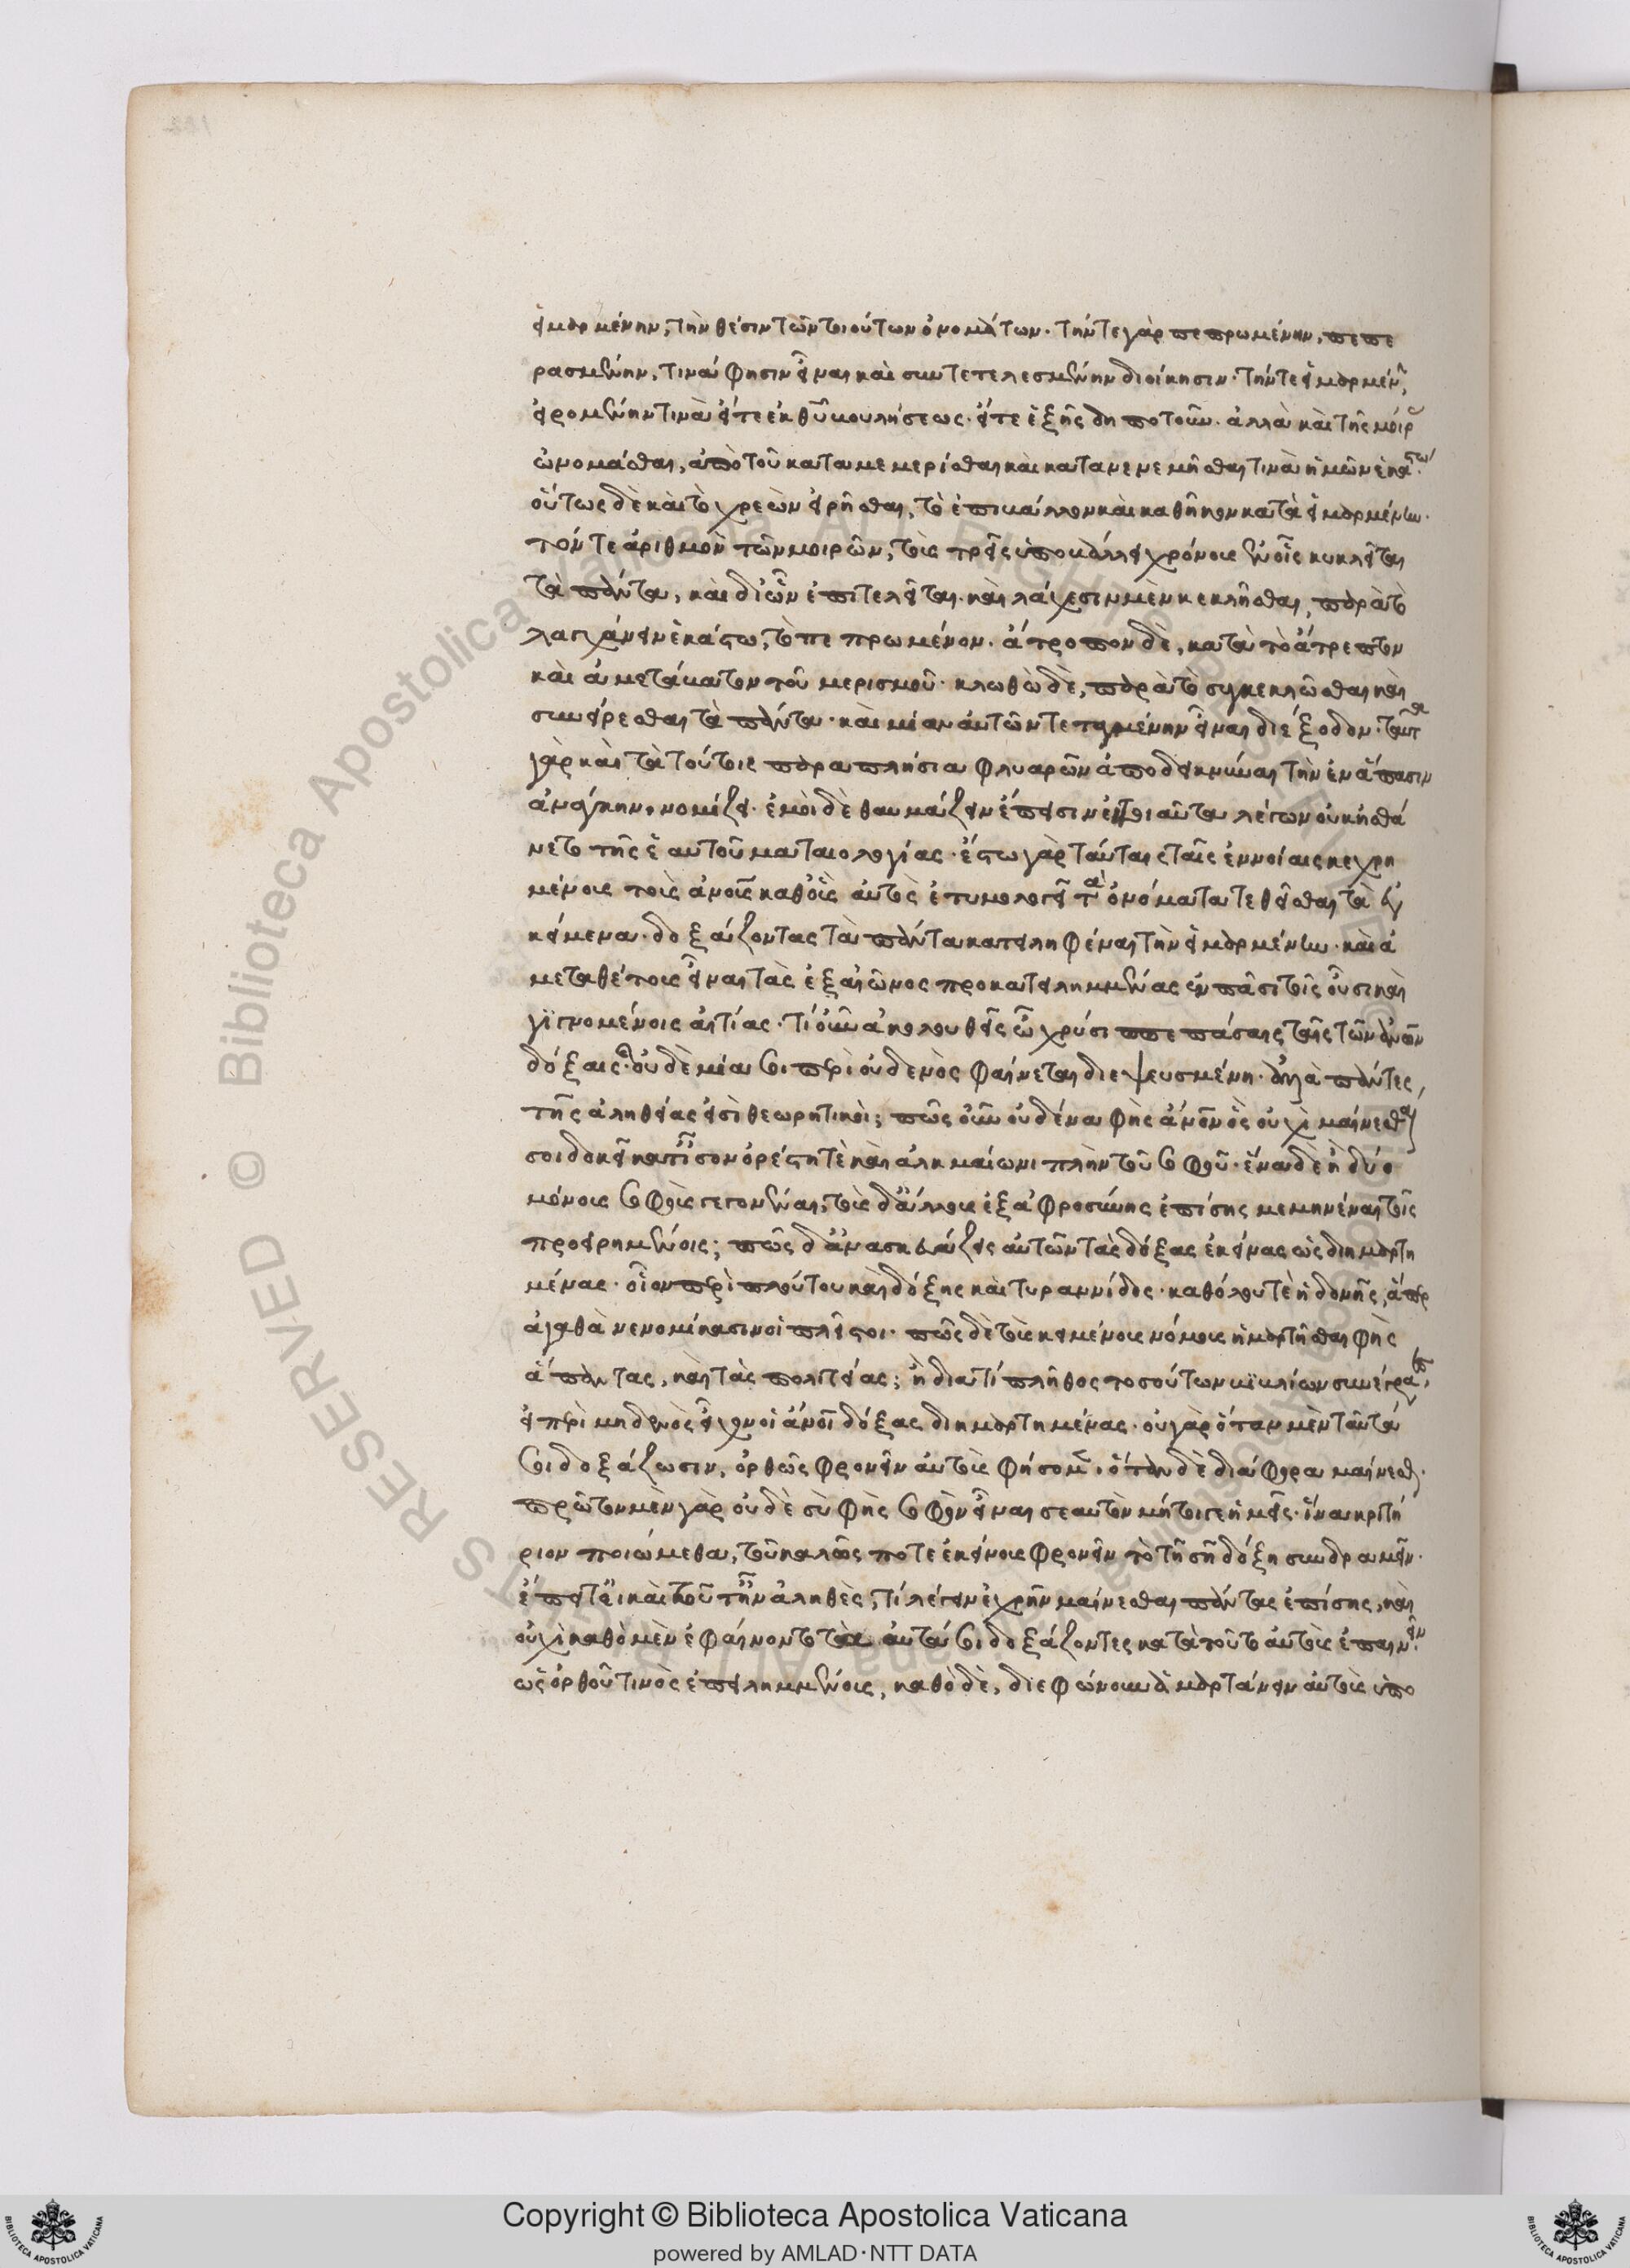 εἱμαρμένην, τὴν θέσιν τῶν τοιούτων ὀνομάτων. τήν τε γὰρ πεπρωμένην, πεπε
ρασμένην, τινά φησιν εἶναι καὶ συντετελεσμένην διοίκησιν. τήν τε εἱμαρμένην,
εἰρομένην τινὰ εἴτε ἐκ θεοῦ βουλήσεως. εἴτε ἐξ ἧς δήποτ' οὖν. ἀλλὰ καὶ τῆς μοίρας
ὠνομάσθαι, ἀπὸ τοῦ καταμεμερίσθαι καὶ κατανενεμῆσθαι τινὰ ἡμῶν ἑκάστω.
οὕτως δὲ καὶ τὸ χρεὼν εἰρῆσθαι, τὸ ἐπιβάλλον καὶ καθῆκον κατὰ εἱμαρμένην.
τόν τε ἀριθμὸν τῶν μοιρῶν, τοὺς τρεῖς ὑποβάλλει χρόνους ἐν οἷς κυκλεῖται
τὰ πάντα, καὶ δι' ὧν ἐπιτελεῖται. καὶ λάχεσιν μὲν κεκλῆσθαι, παρὰ τὸ
λαγχάνειν ἑκάστω, τὸ πεπρωμένον. ἄτροπον δὲ, κατὰ τὸ ἄτρεπτον
καὶ ἀμετάβατον τοῦ μερισμοῦ. κλωθὼ δὲ, παρὰ τὸ συγκεκλῶσθαι καὶ
συνείρεσθαι τὰ πάντα. καὶ μίαν αὐτῶν τεταγμένην εἶναι διέξοδον. ταῦτα
γὰρ καὶ τὰ τούτοις παραπλήσια φλυαρῶν ἀποδεικνύναι τὴν ἐν ἅπασιν
ἀνάγκην, νομίζει. ἐμοὶ δὲ θαυμάζειν ἔπεισιν εἰ τοιαῦτα λέγων οὐκ ἠσθά
νετο τῆς ἑαυτοῦ ματαιολογίας. ἔστω γὰρ ταύταις ταῖς ἐννοίαις κεχρη
μένους τοὺς ἀνους καθ' οὓς αὐτὸς ἐτυμολογεῖ τὰ ὀνόματα τεθεῖσθαι τὰ ἐγ
κείμενα. δοξάζοντας τὰ πάντα κατειληφέναι τὴν εἱμαρμένην. καὶ ἀ
μεταθέτους εἶναι τὰς ἐξ αἰῶνος προκατειλημμένας ἐν πᾶσι τοῖς οὖσι καὶ
γϊγνομένοις αἰτίας. τί οὖν ἀκολουθεῖς ὦ χρύσιππε πάσαις ταῖς τῶν ἀνων
δόξαις. καὶ οὐδὲ μία σοι περὶ οὐδενὸς φαίνεται διεψευσμένη. ἀλλὰ πάντες,
τῆς ἀληθείας εἰσὶ θεωρητικοί; πῶς οὖν οὐδένα φῆς ἀνον ὃς οὐχὶ μαίνεσθαι
σοι δοκεῖ κατ' ἴσον ὀρέστη τὲ καὶ ἀλκμαίωνι πλὴν τοῦ σοφοῦ. ἕνα δὲ ἢ δύο
μόνους σοφοὺς γεγονέναι, τοὺς δ' ἄλλους ἐξ ἀφροσύνης ἐπίσης μεμηνέναι τοῖς
προειρημένοις; πῶς δ' ἀνασκευάζεις αὐτῶν τὰς δόξας ἐκείνας ὡς διημαρτη
μένας. οἷον περὶ πλούτου καὶ δόξης καὶ τυραννίδος. καθόλου τὲ ἡδονῆς, ἅπερ
ἀγαθὰ νενομίκασιν οἱ πλεῖστοι. πῶς δὲ τοὺς κειμένους νόμους ἡμαρτῆσθαι φῆς
ἅπαντας, καὶ τὰς πολιτείας; ἢ διατί πλῆθος τοσούτων βϊβλίων συνέγραψας,
εἰ περὶ μηδενὸς εἶχον οἱ ἄνοι δόξας διημαρτημένας. οὐ γὰρ ὅταν μὲν ταῦτά
σοι δοξάζωσιν, ὀρθῶς φρονεῖν αὐτοὺς φήσομεν. ὅταν δὲ διάφορα μαίνεσθαι.
πρῶτον μὲν γὰρ οὐδὲ σὺ φῆς σοφὸν εἶναι σεαυτὸν μήτοιγε ἡμεῖς. ἵνα κριτή
ριον ποιώμεθα, τοῦ καλῶς ποτε ἐκείνους φρονεῖν τὸ τῇ σῇ δόξη συνδραμεῖν.
ἔπειτ' εἰ καὶ τοῦτ' ἦν ἀληθὲς, τί λέγειν ἐχρῆν μαίνεσθαι πάντας ἐπίσης, καὶ
οὐχὶ καθὸ μὲν ἐφαίνοντο τὰ αὐτά σοι δοξάζοντες κατὰ τοῦτο αὐτοὺς ἐπαινεῖν.
ὡς ὀρθοῦ τινὸς ἐπειλημμένους, καθὸ δὲ, διεφώνουν ἁμαρτάνειν αὐτοὺς ὑπο
Copyright © Biblioteca Apostolica Vaticana
powered by AMLAD·NTT DATA